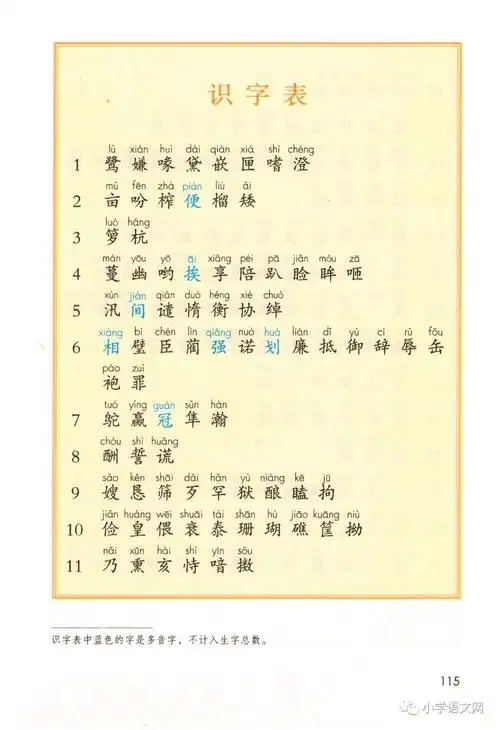 识字表
lù xián huì dài qiàn xiá shì chéng
1 鹭 嫌 喙 黛 嵌 匣 嗜 澄
mǔ fēn zhà pián liú ǎi
2 亩 吩 榨 便 榴 矮
luó háng
3 箩 杭
mán yōu yō āi xiǎng péi pā jiǎn móu zā
4 蔓 幽 哟 挨 享 陪 趴 睑 眸 咂
xùn jiàn qiǎn duò héng xié chuò
5 汛 间 谴 惰 衡 协 绰
xiàng bì chén lìn qiǎng nuò huá lián dǐ yù cí rǔ fǒu
6 相 璧 臣 蔺 强 诺 划 廉 抵 御 辞 辱 缶
páo zuì
袍 罪
tuó yíng guàn sǔn hàn
7 鸵 赢 冠 隼 瀚
chóu shì huǎng
8 酬 誓 谎
sǎo kěn shāi dǎi hǎn yù niàng kē jū
9 嫂 恳 筛 歹 罕 狱 酿 瞌 拘
jiǎn huáng wēi shuāi tài shān hú jiāo kuāng niù
10 俭 皇 偎 衰 泰 珊 瑚 礁 筐 拗
nǎi xūn hài shì yīn sǒu
11 乃 熏 亥 恃 喑 擞
识字表中蓝色的字是多音字，不计入生字总数。
115
小学语文网